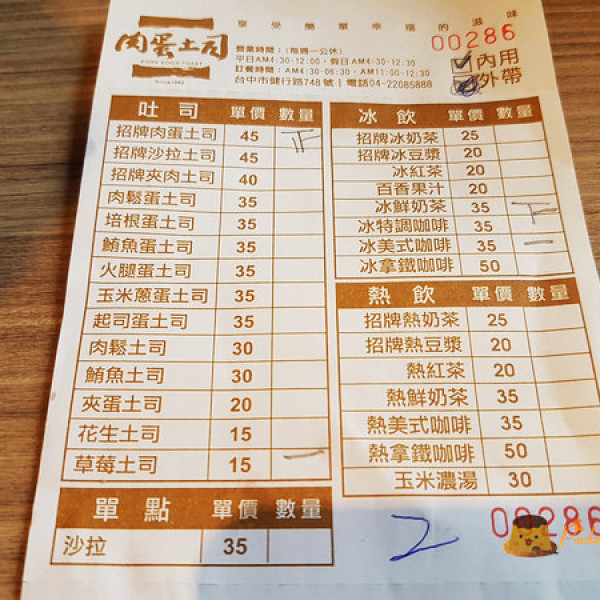 享受簡單幸福的滋味
00286
肉蛋土司
PORK EGGS TOAST
Since1983
營業時間：(每週一公休)
平日AM4:30-12:00 · 假日AM4:30-12:30
訂餐時間：AM4:30-06:30 · AM11:00-12:30
台中市健行路748號｜電話04-22085888
內用
外帶
吐司 單價 數量
招牌肉蛋土司 45 下
招牌沙拉土司 45
招牌夾肉土司 40
肉鬆蛋土司 35
培根蛋土司 35
鮪魚蛋土司 35
火腿蛋土司 35
玉米蔥蛋土司 35
起司蛋土司 35
肉鬆土司 30
鮪魚土司 30
夾蛋土司 20
花生土司 15
草莓土司 15 一
單點 單價 數量
沙拉 35
冰飲 單價 數量
招牌冰奶茶 25
招牌冰豆漿 20
冰紅茶 20
百香果汁 20
冰鮮奶茶 35 下
冰特調咖啡 35
冰美式咖啡 35 一
冰拿鐵咖啡 50
熱飲 單價 數量
招牌熱奶茶 25
招牌熱豆漿 20
熱紅茶 20
熱鮮奶茶 35
熱美式咖啡 35
熱拿鐵咖啡 50
玉米濃湯 30
2
00286